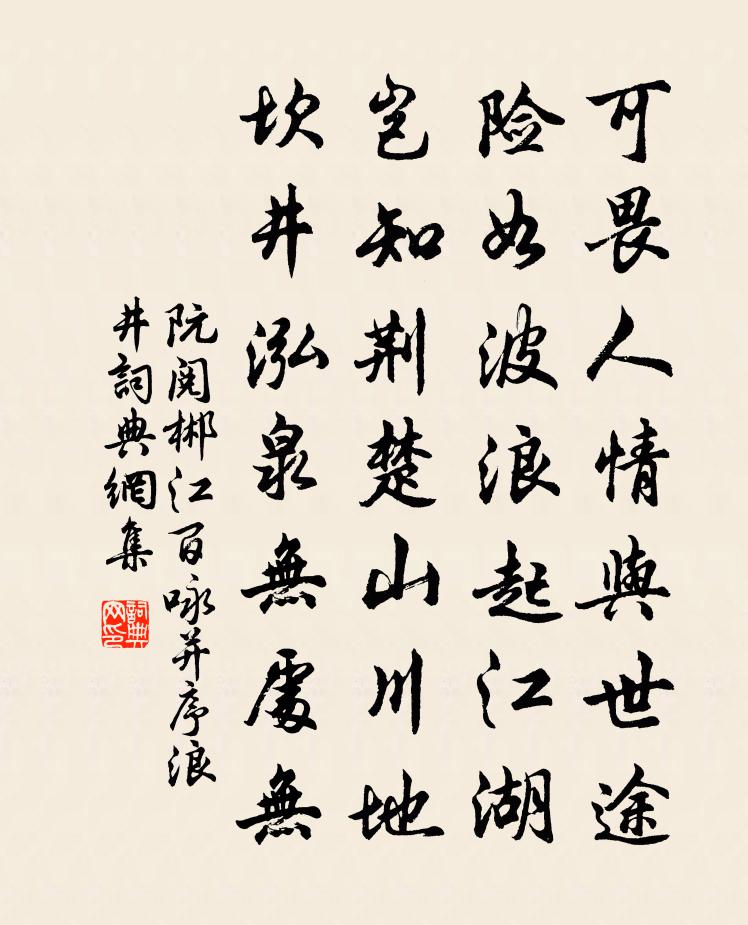 可畏人情與世途
险如波浪起江湖
岂知荆楚山川地
坎井泓泉無處無
阮閱郴江百咏并序浪
井詞典網集
詞典网印